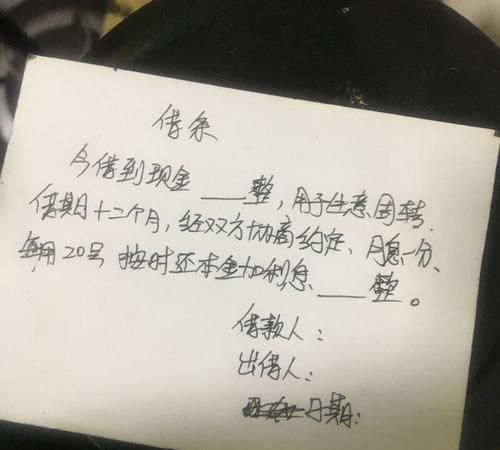 借条
今借到现金____整，用于生意周转.
借期十二个月，经双方协商约定、月息一分、
每月20号 按时还本金加利息____整。
借款人：
出借人：
日期：